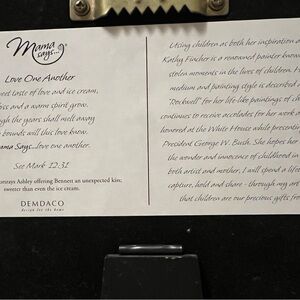 Mama
says...
Love One Another
sweet taste of love and ice cream,
and a warm spirit grow,
the years shall melt away
bounds will this love know.
Mama Says...love one another.
See Mark 12:31
Ashley offering Bennett an unexpected kiss;
sweeter than even the ice cream.
DEMDACO
design for the home
Using children as both her inspiration a
Kathy Fincher is a renowned painter know
stolen moments in the lives of children. H
medium and painting style is described
"Rockwell" for her life-like paintings of ch
continues to receive accolades for her work a
honored at the White House while presentin
President George W. Bush. She hopes her
the wonder and innocence of childhood in
both artist and mother, I will spend a lifet
capture, hold and share - through my ar
that children are our precious gifts fro